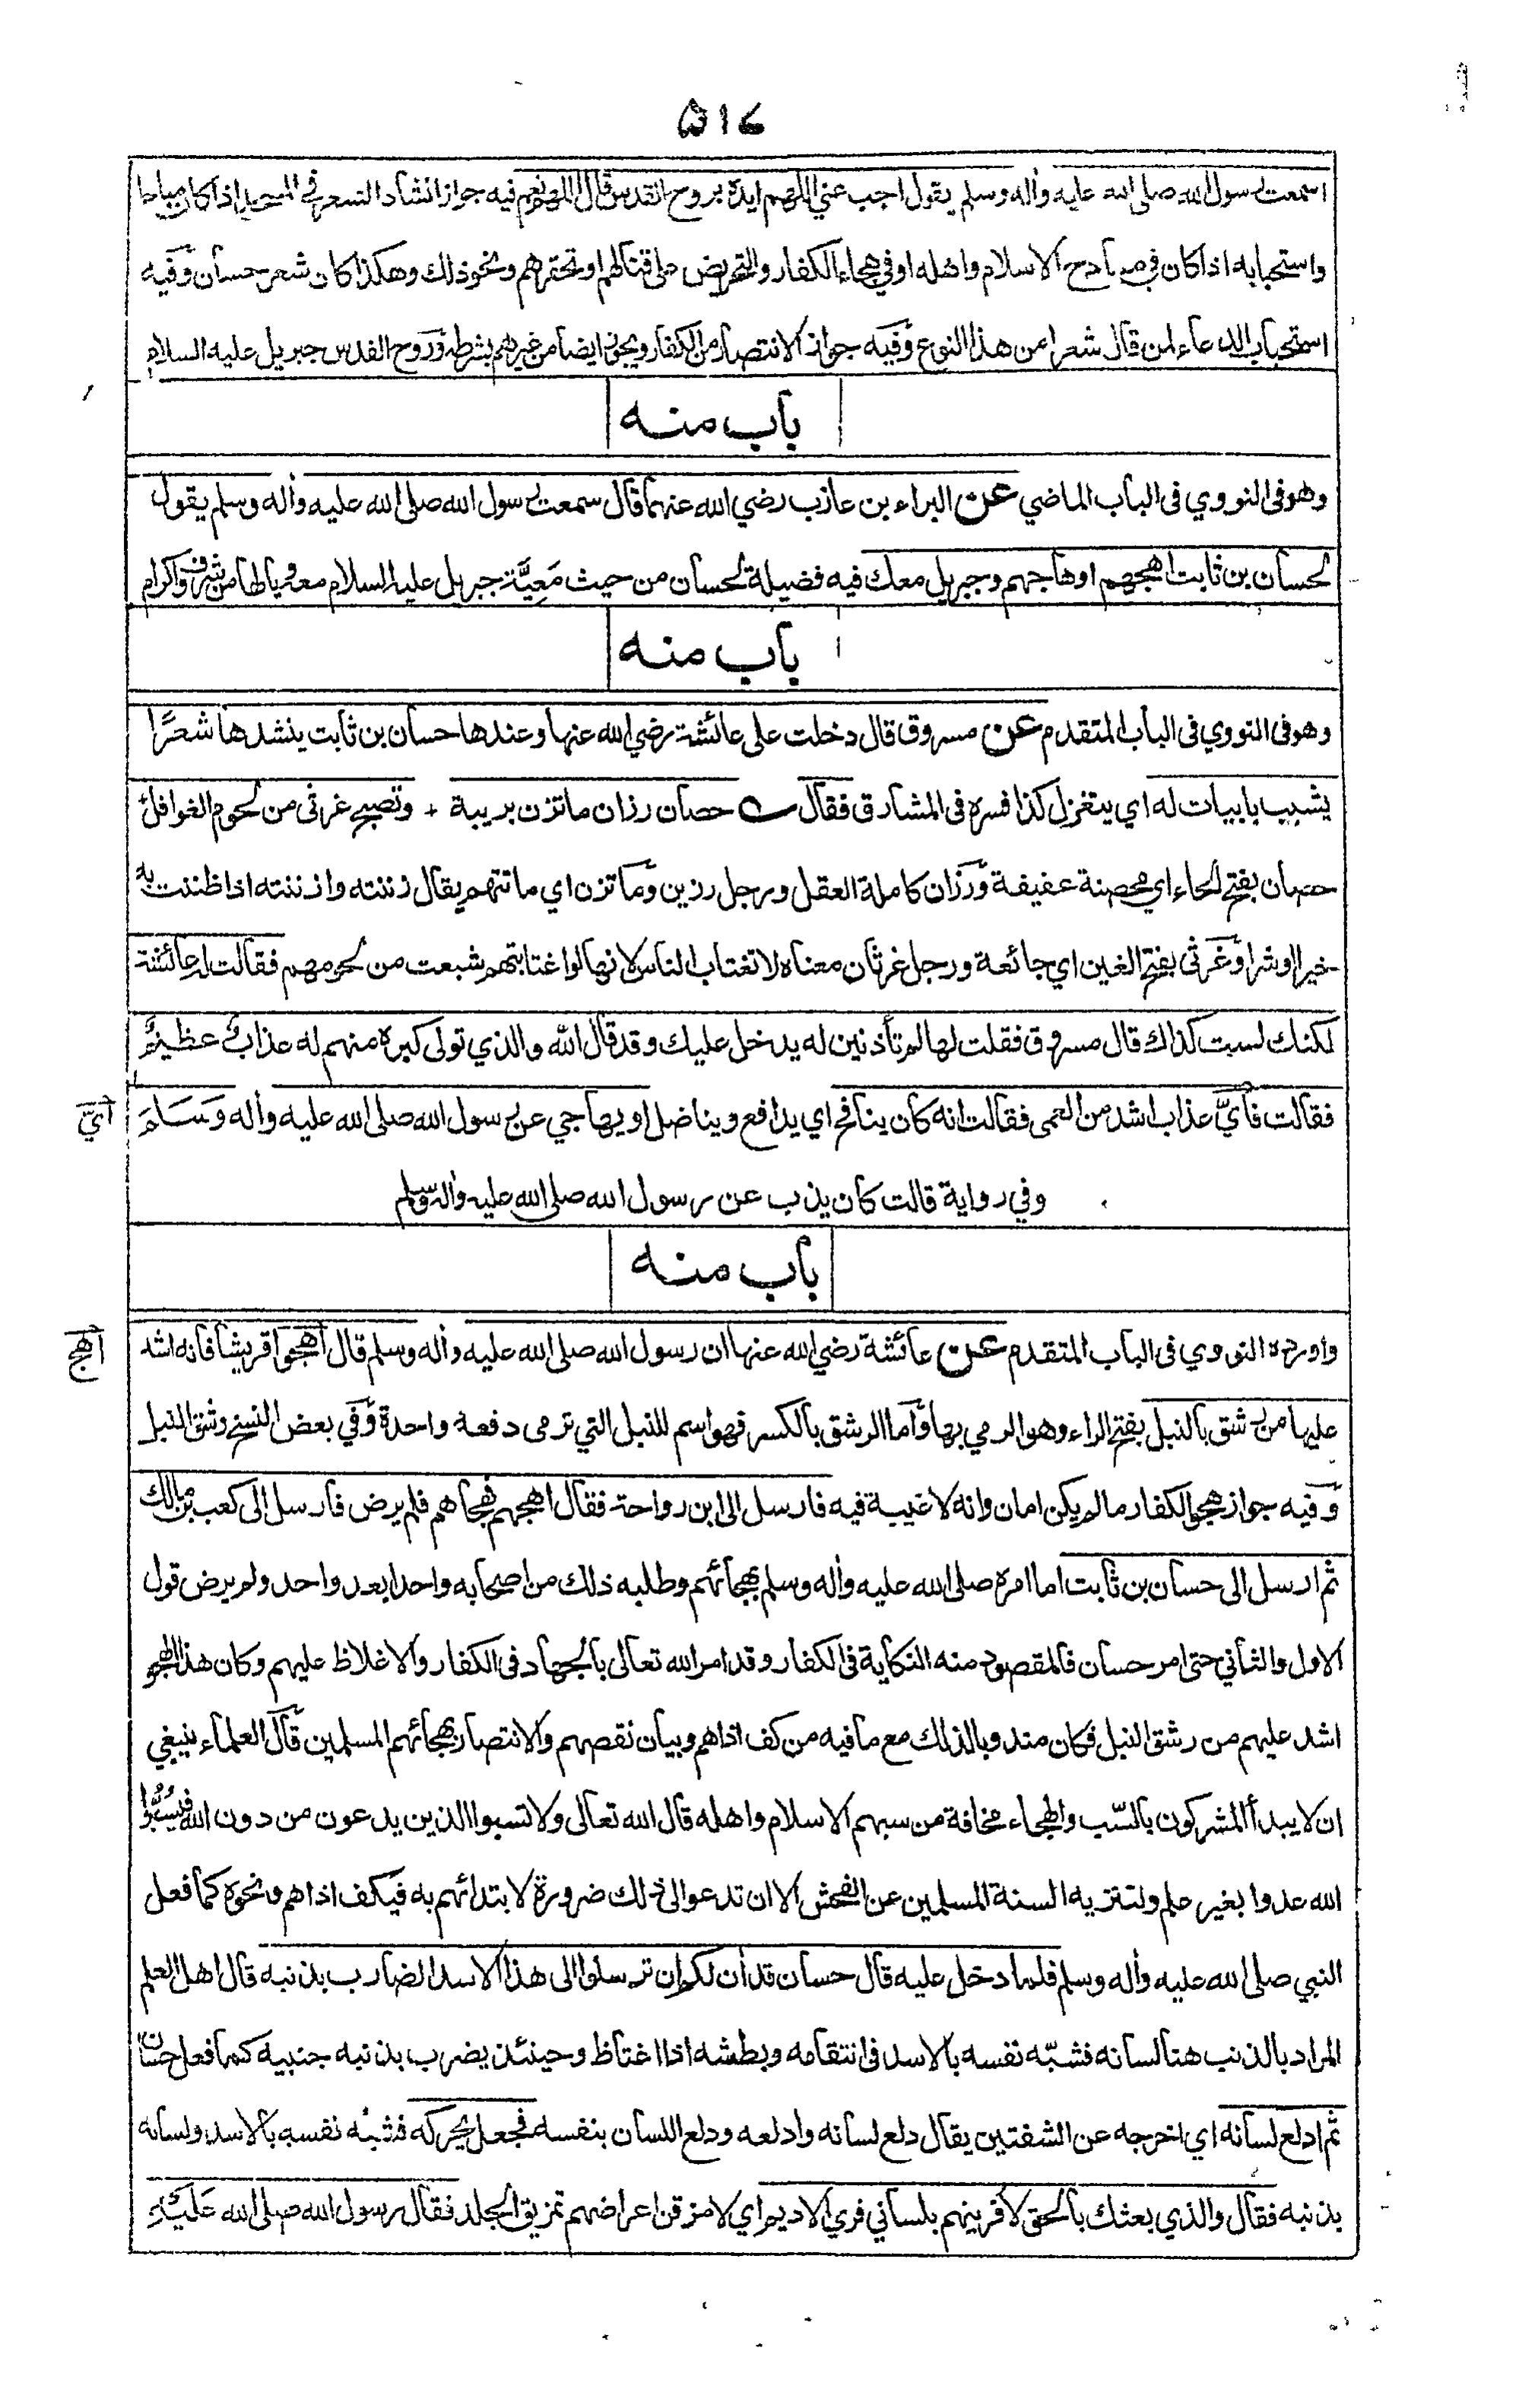 ۵۱۶
اسمعت رسول الله صلى الله عليه واٰله وسلم يقول اجب عني اللهم ايده بروح القدس قال اللهم نعم فيه جواز انشاد الشعر في المسجد اذا كان مباحا
واستحبابه اذا كان في ممادح الاسلام واهله او في هجاء الكفار والتحريض على قتالهم او تحقيرهم ونحو ذلك وهكذا كان شعر حسان وفيه
استحباب الدعاء لمن قال شعرا من هذا النوع وفيه جواز الانتصار من الكفار ويجوز ايضا من غيرهم بشرطه وروح القدس جبريل عليه السلام
باب منه
وهو في النووي في الباب الماضي عن البراء بن عازب رضي الله عنهما قال سمعت رسول الله صلى الله عليه واٰله وسلم يقول
لحسان بن ثابت اهجهم او هاجهم وجبريل معك فيه فضيلة لحسان من حيث مَعِيَّة جبريل عليه السلام معه ويا لها من شرف واكرام
باب منه
وهو في النووي في الباب المتقدم عن مسروق قال دخلت على عائشة رضي الله عنها وعندها حسان بن ثابت ينشدها شعرًا
يشبب بابيات له اي يتغزل كذا فسره في المشارق فقال حصان رزان ما تزن بريبة + وتصبح غرثى من لحوم الغوافل
حصان بفتح الحاء اي محصنة عفيفة ورزان كاملة العقل ورجل رزين وما تزن اي ما تتهم يقال زننته وازننته اذا ظننت به
خيرا او شرا وغرثى بفتح الغين اي جائعة ورجل غرثان معناه لا تغتاب الناس لانها لو اغتابتهم شبعت من لحومهم فقالت له عائشة
لكنك لست كذلك قال مسروق فقلت لها لم تأذنين له يدخل عليك وقد قال الله والذي تولى كبره منهم له عذاب عظيم
فقالت فأيّ عذاب اشد من العمى فقالت انه كان ينافح اي يدافع ويناضل او يهاجي عن رسول الله صلى الله عليه واٰله وَسَلَّمَ
أيّ
وفي رواية قالت كان يذب عن رسول الله صلى الله عليه واٰله وسلم
باب منه
واورده النووي في الباب المتقدم عن عائشة رضي الله عنها ان رسول الله صلى الله عليه واٰله وسلم قال اهجوا قريشا فانه اشد
اهج
عليها من رشق بالنبل بفتح الراء وهو الرمي بها واما الرشق بالكسر فهو اسم للنبل التي ترمى دفعة واحدة وفي بعض النسخ رشق النبل
وفيه جواز هجو الكفار ما لم يكن امان وانه لا غيبة فيه فارسل الى ابن رواحة فقال اهجهم فهجاهم فلم يرض فارسل الى كعب بن مالك
ثم ارسل الى حسان بن ثابت اما امره صلى الله عليه واٰله وسلم بهجائهم وطلبه ذلك من اصحابه واحدا بعد واحد ولم يرض قول
الاول والثاني حتى امر حسان فالمقصود منه النكاية في الكفار وقد امر الله تعالى بالجهاد في الكفار والاغلاظ عليهم وكان هذا الهجو
اشد عليهم من رشق النبل فكان مندوبا لذلك مع ما فيه من كف اذاهم وبيان نقصهم والانتصار بهجائهم المسلمين قال العلماء ينبغي
ان لا يبدأ المشركون بالسّب والهجاء مخافة من سبهم الاسلام واهله قال الله تعالى ولا تسبوا الذين يدعون من دون الله فيسُبُّوا
الله عدوا بغير علم ولتنزيه السنة المسلمين عن الفحش الا ان تدعوا الى ذلك ضرورة لابتدائهم به فيكف اذاهم ونحوه كما فعل
النبي صلى الله عليه واٰله وسلم فلما دخل عليه قال حسان قد اٰن لكم ان ترسلوا الى هذا الاسد الضارب بذنبه قال اهل العلم
المراد بالذنب هنا لسانه فشبّه نفسه بالاسد في انتقامه وبطشه اذا اغتاظ وحينئذ يضرب بذنبه جنبيه كما فعل حسان
ثم ادلع لسانه اي اخرجه عن الشفتين يقال دلع لسانه وادلعه ودلع اللسان بنفسه فجعل يحركه فشبّه نفسه بالاسد ولسانه
بذنبه فقال والذي بعثك بالحق لافرينهم بلساني فري الاديم اي لامزقن اعراضهم تمزيق الجلد فقال رسول الله صلى الله عَلَيْهِ